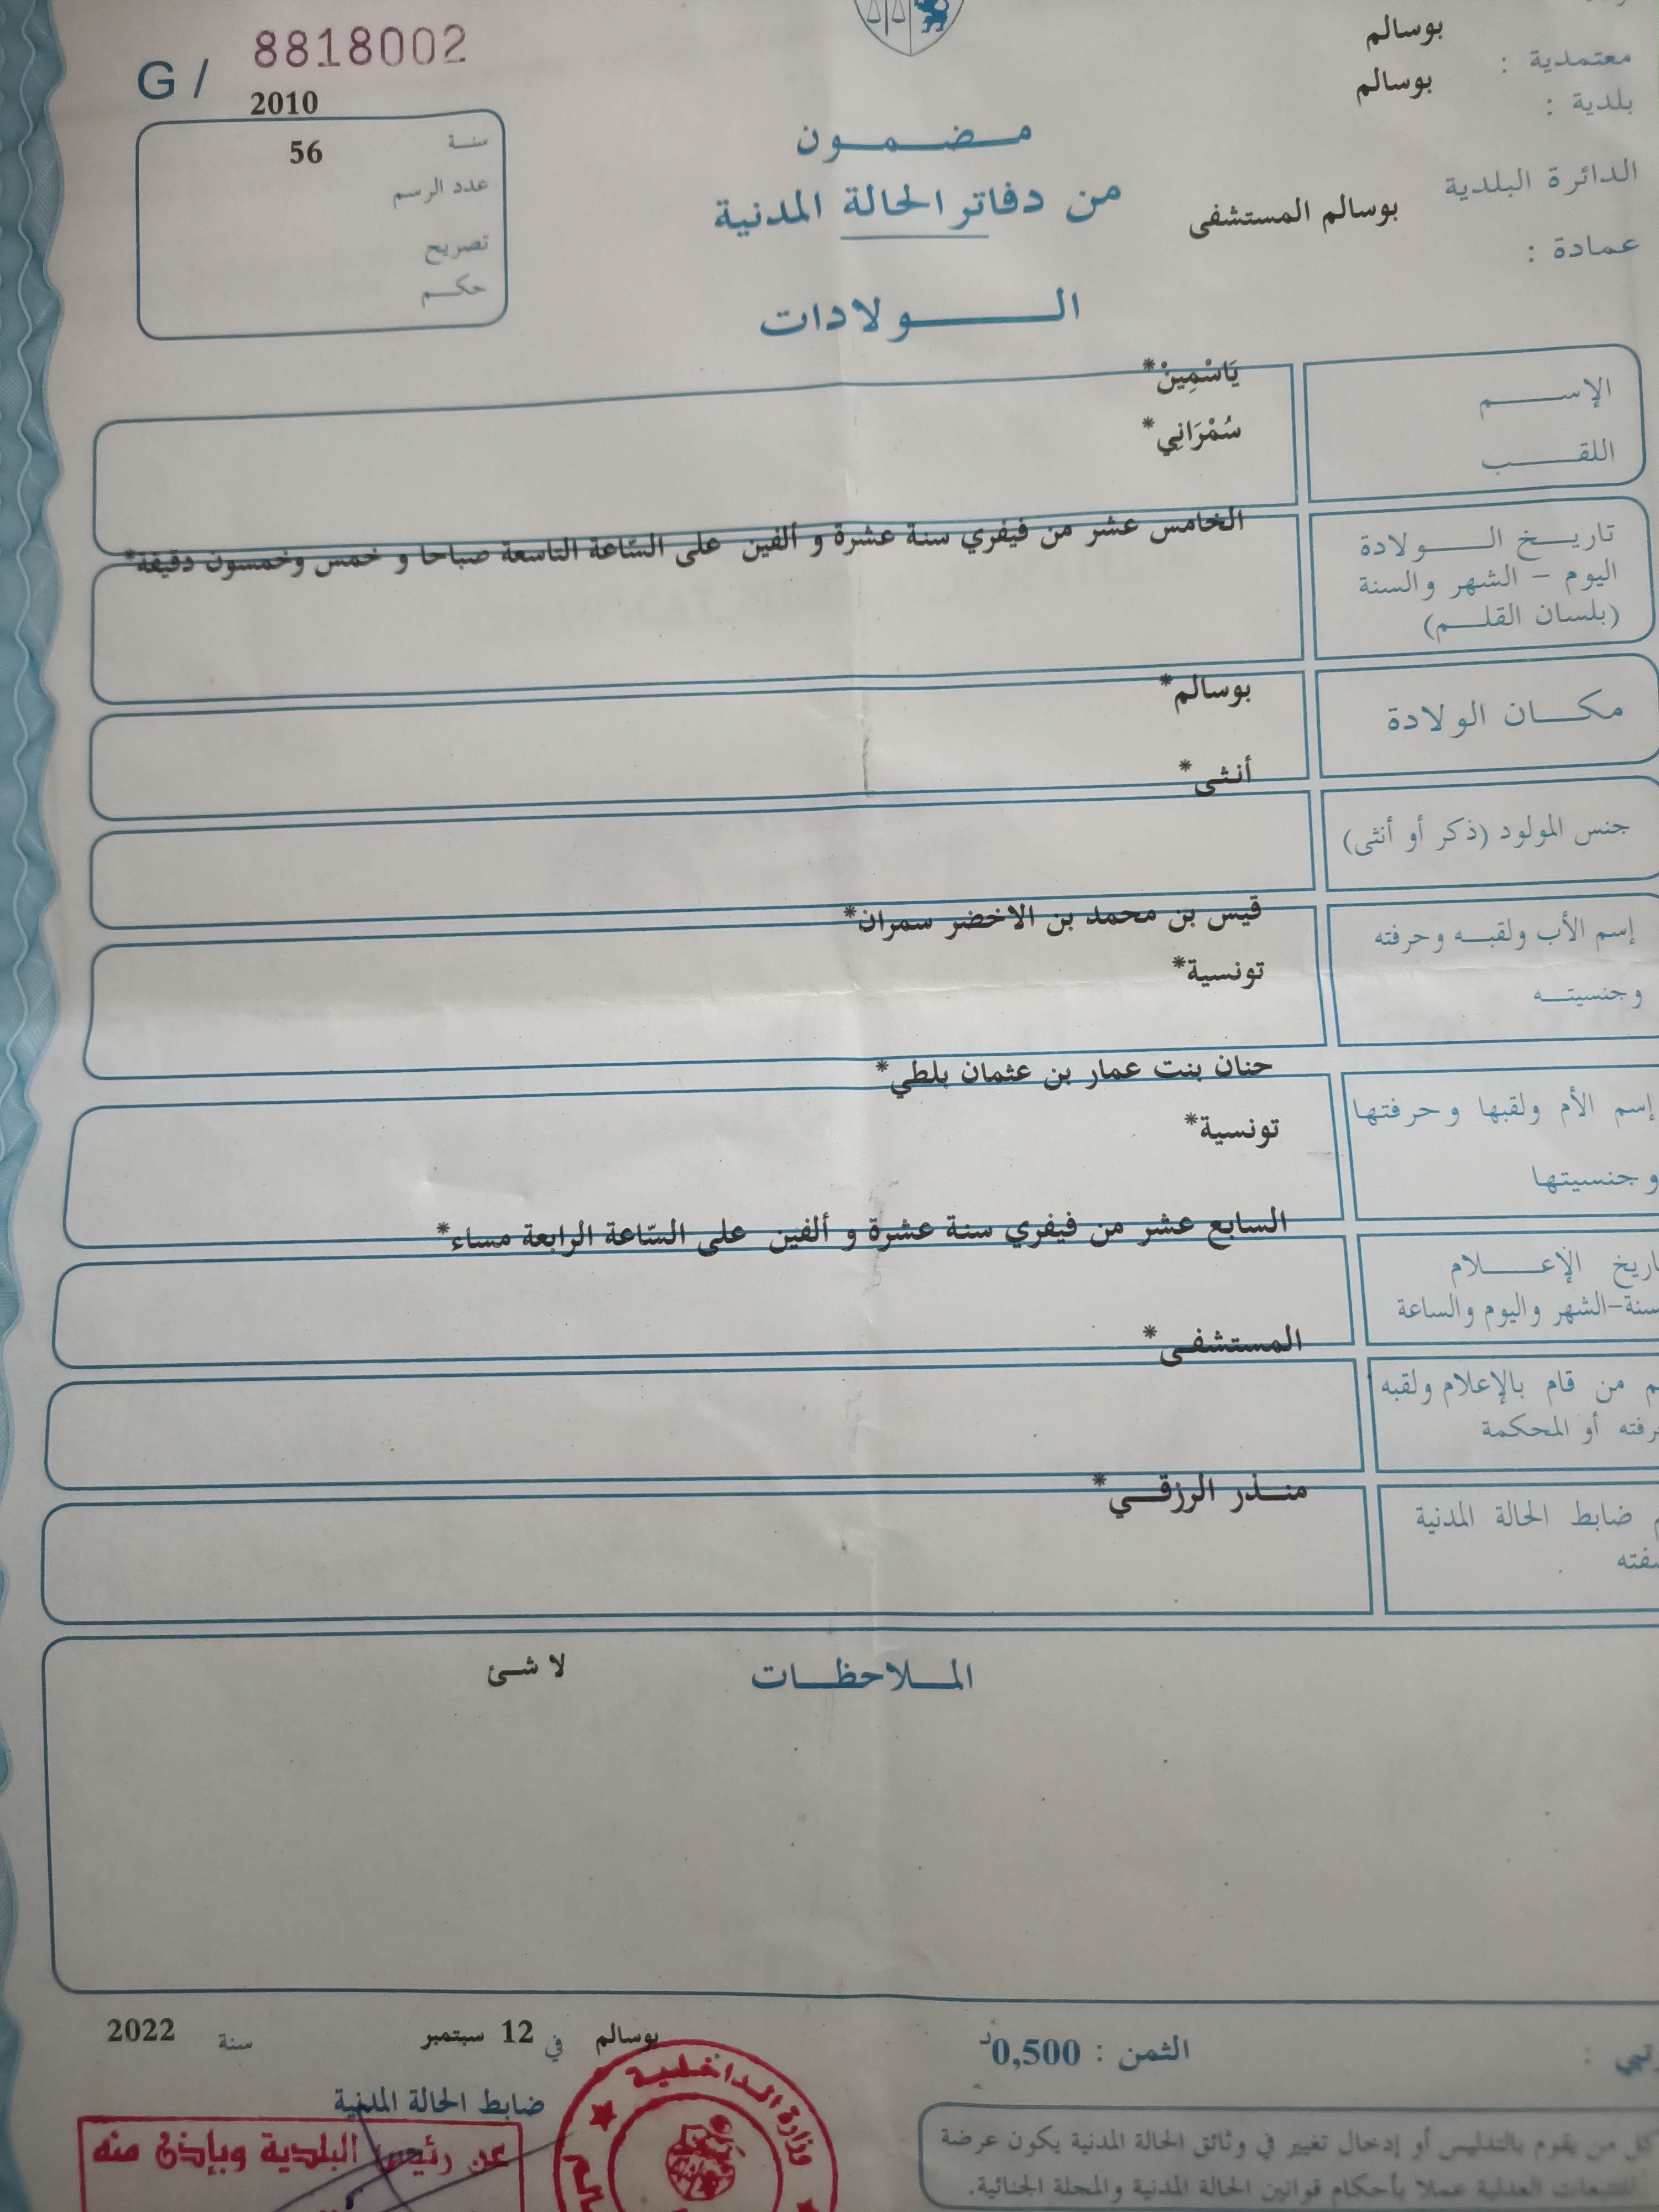 بوسالم
معتمدية :
بوسالم
بلدية :
الدائرة البلدية
بوسالم المستشفى
عمادة :
G / 8818002
2010
سنة
56
عدد الرسم
تصريح
حكم
مضمون
من دفاتر الحالة المدنية
الولادات
الإسم
يَاسْمِينْ*
اللقب
سُمْرَانِي*
تاريخ الولادة
اليوم - الشهر والسنة
(بلسان القلم)
الخامس عشر من فيفري سنة عشرة و ألفين على السّاعة التاسعة صباحا و خمس وخمسون دقيقة*
مكان الولادة
بوسالم*
جنس المولود (ذكر أو أنثى)
أنثى*
إسم الأب ولقبه وحرفته
وجنسيته
قيس بن محمد بن الاخضر سمران*
تونسية*
إسم الأم ولقبها وحرفتها
وجنسيتها
حنان بنت عمار بن عثمان بلطي*
تونسية*
الإعلام
سنة-الشهر واليوم والساعة
السابع عشر من فيفري سنة عشرة و ألفين على السّاعة الرابعة مساء*
من قام بالإعلام ولقبه
أو المحكمة
المستشفى*
ضابط الحالة المدنية
منذر الرزقي*
الملاحظات
لا شئ
بوسالم في 12 سبتمبر سنة 2022
الثمن : 0,500د
ضابط الحالة المدنية
عن رئيس البلدية وبإذن منه
وزارة الداخلية
كل من يقوم بالتدليس أو إدخال تغيير في وثائق الحالة المدنية يكون عرضة
للتتبعات العدلية عملا بأحكام قوانين الحالة المدنية والمجلة الجنائية.